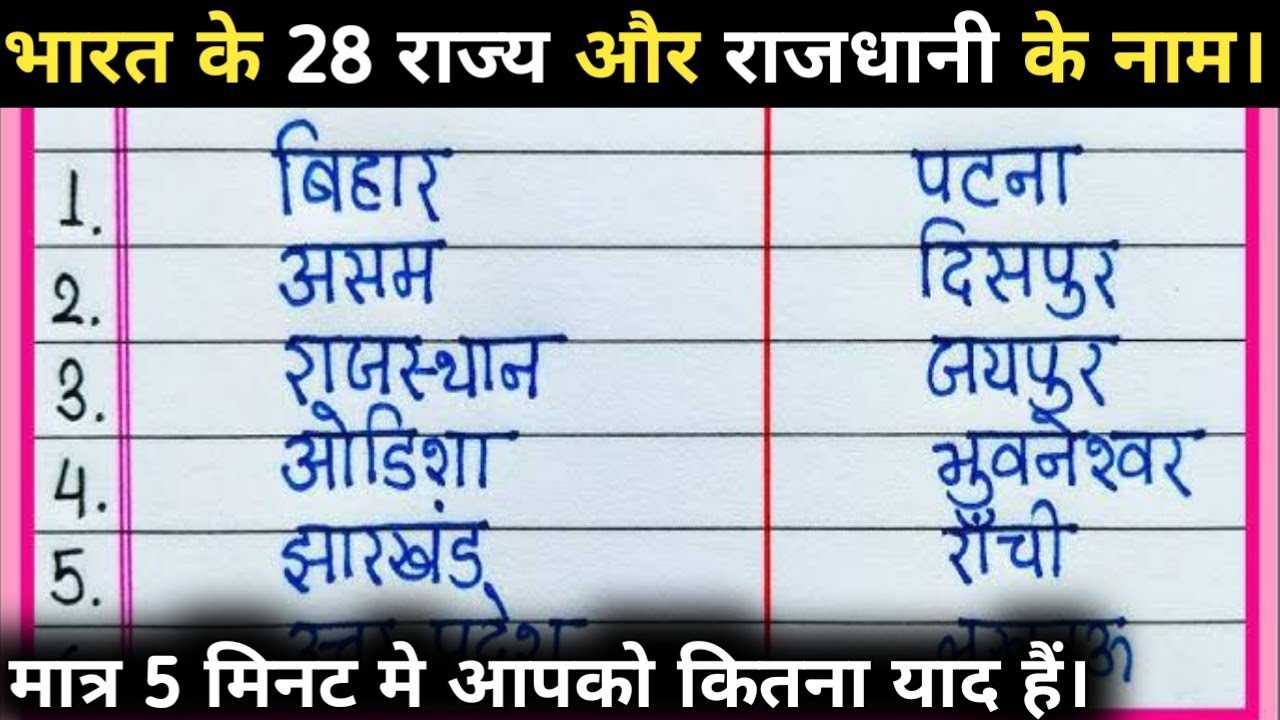 भारत के 28 राज्य और राजधानी के नाम।
1. बिहार पटना
2. असम दिसपुर
3. राजस्थान जयपुर
4. ओडिशा भुवनेश्वर
5. झारखंड राँची
मात्र 5 मिनट मे आपको कितना याद हैं।